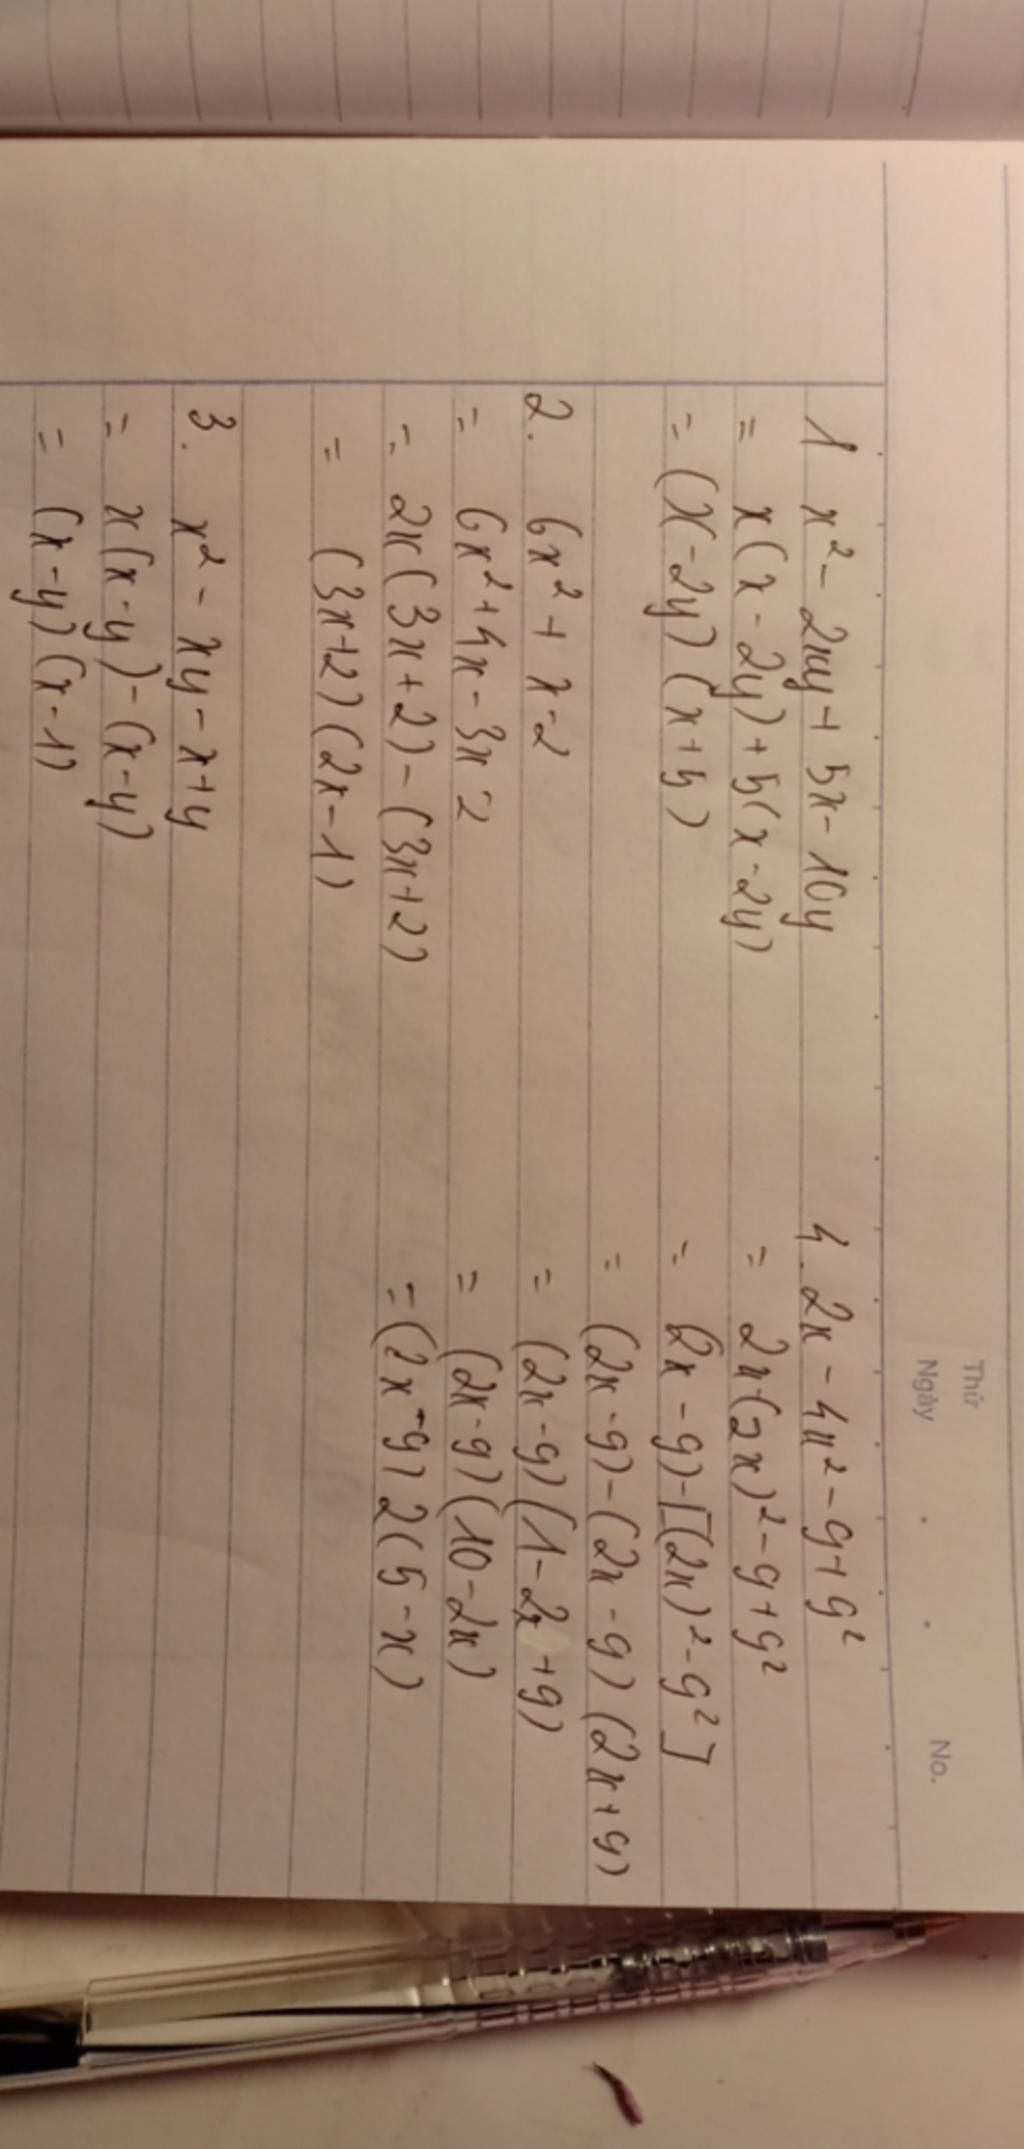 Thứ
Ngày
No.
1 x² - 2xy + 5x - 10y
= x(x - 2y) + 5(x - 2y)
= (x - 2y)(x + 5)
2. 6x² + x - 2
= 6x² + 4x - 3x 2
= 2x(3x + 2) - (3x + 2)
= (3x + 2)(2x - 1)
3. x² - xy - x + y
= x(x - y) - (x - y)
= (x - y)(x - 1)
4. 2x - 4x² - 9 + 9²
= 2x - (2x)² - 9 + 9²
= (2x - 9) - [(2x)² - 9²]
= (2x - 9) - (2x - 9)(2x + 9)
= (2x - 9)(1 - 2x + 9)
= (2x - 9)(10 - 2x)
= (2x - 9) 2(5 - x)